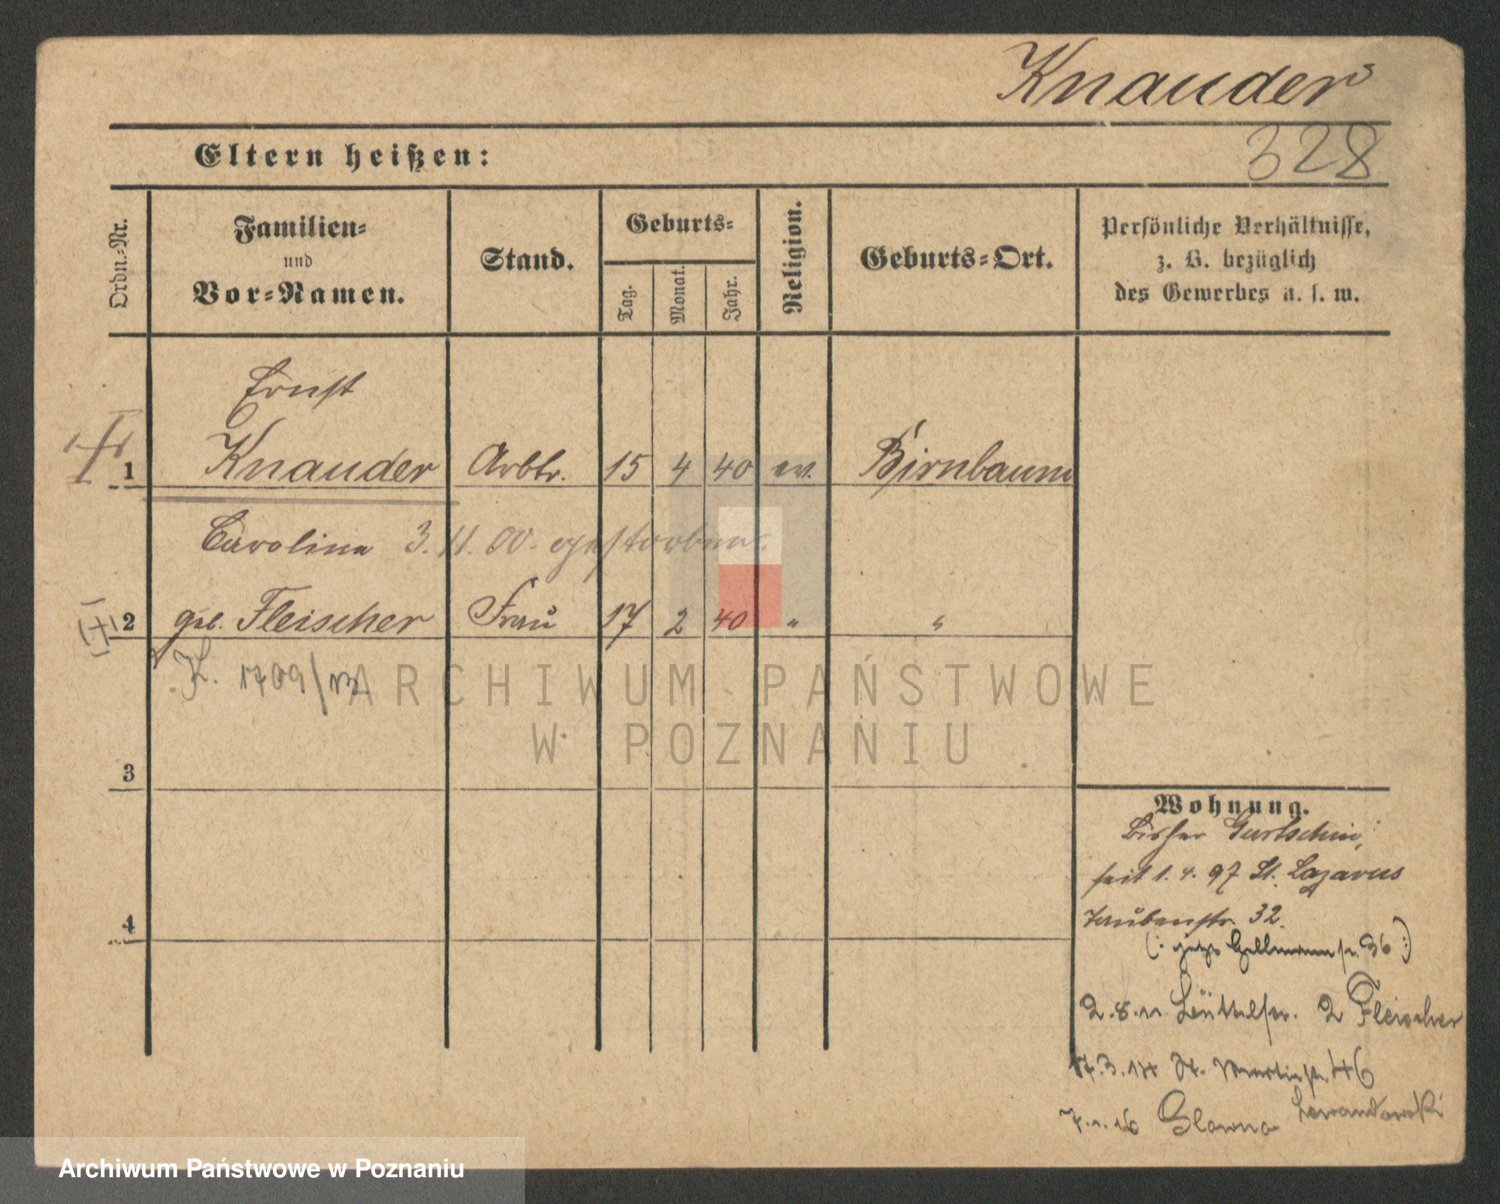 Knauder
Eltern heißen:
328
Ordn.-Nr.
Familien-
und
Vor-Namen.
Stand.
Geburts-
Tag.
Monat.
Jahr.
Religion.
Geburts-Ort.
Persönliche Verhältnisse,
z. B. bezüglich
des Gewerbes u. s. w.
Ernst
1 Knauder Arbtr. 15 4 40 ev. Birnbaum
Carolina 3. 11. 00. gestorben.
2 geb. Fleischer Frau 17 2 40 " "
K. 1709/13
ARCHIWUM PAŃSTWOWE
W POZNANIU
3
Wohnung.
Bisher Gurtschin,
seit 1. 4. 97 St. Lazarus
4
Taubenstr. 32.
(: jetzt 36 :)
2 Fleischer
St. Martinstr. 46
Glowno Lewandowski
Archiwum Państwowe w Poznaniu